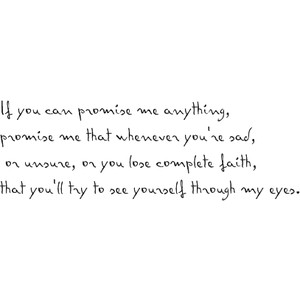 If you can promise me anything,
promise me that whenever you're sad,
or unsure, or you lose complete faith,
that you'll try to see yourself through my eyes.